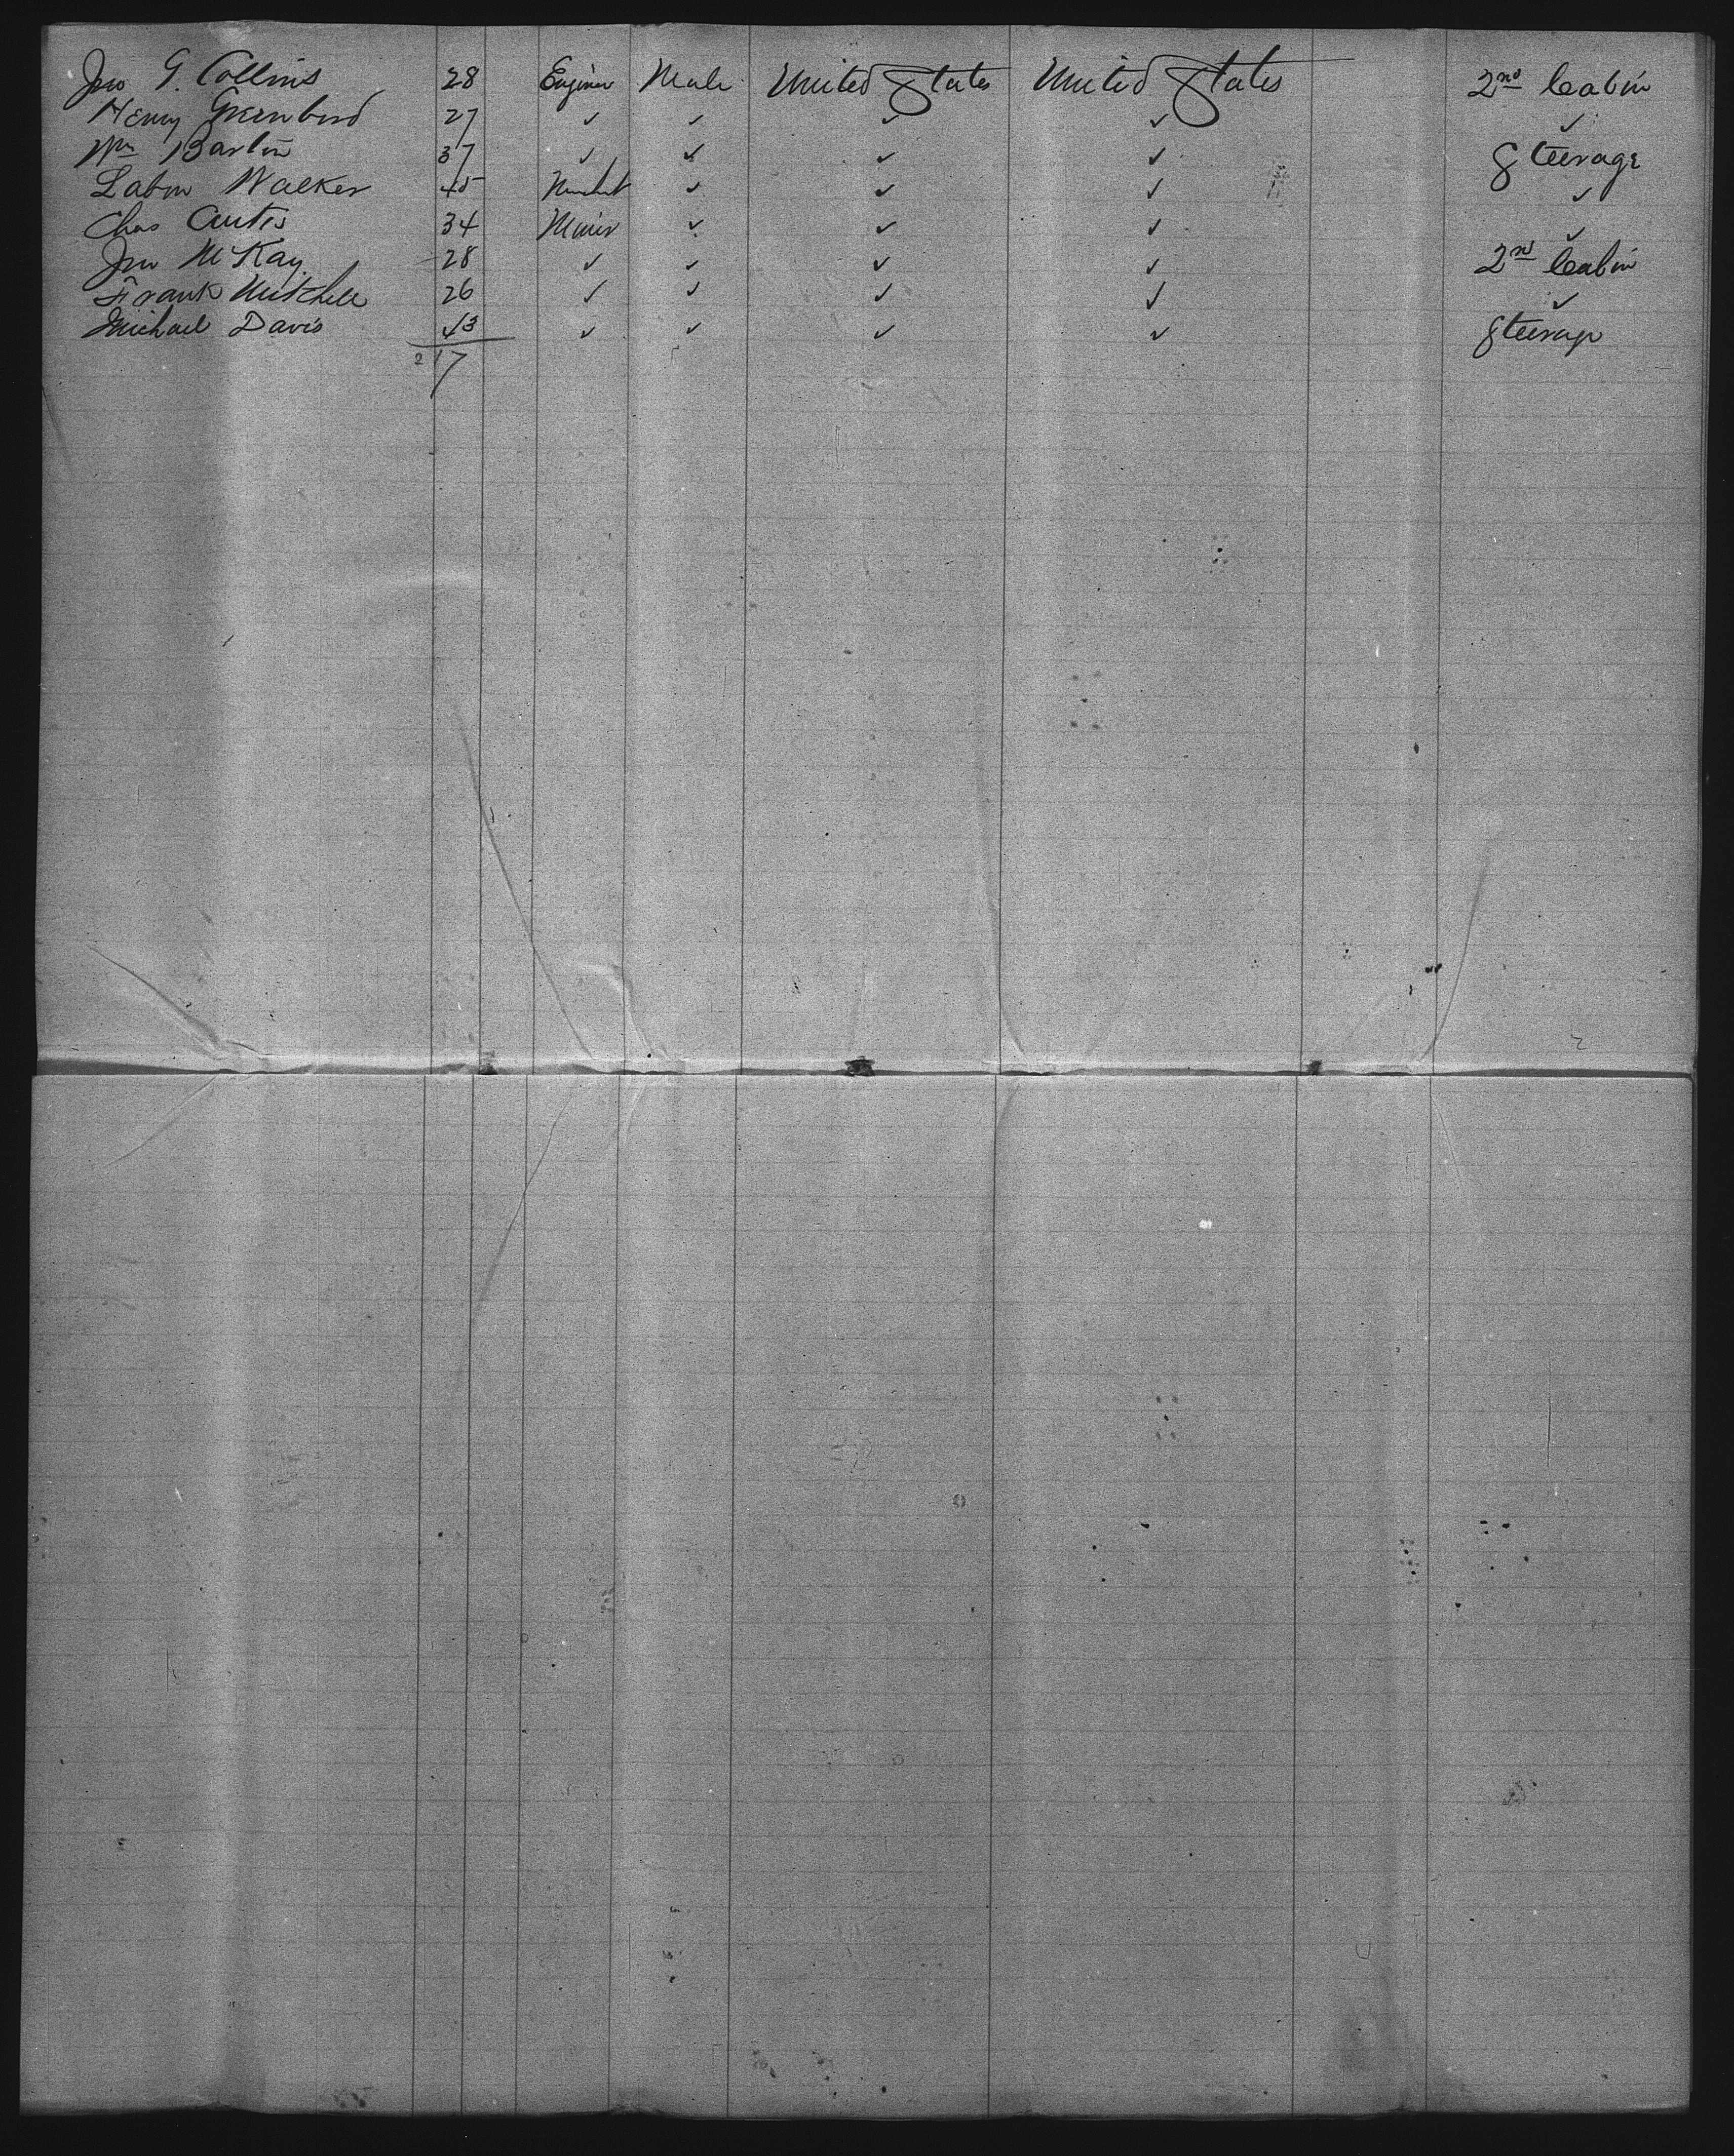 Jno G. Collins 28 Engineer Male United States United States 2nd Cabin
Henry Greenbird 27 ✓ ✓ ✓ ✓ ✓
Wm Barlin 37 ✓ ✓ ✓ ✓ Steerage
Labon Walker 45 ✓ ✓ ✓ ✓
Chas Curtis 34 Miner ✓ ✓ ✓ ✓
Jno McKay 28 ✓ ✓ ✓ ✓ 2nd Cabin
Frank Mitchell 26 ✓ ✓ ✓ ✓ ✓
Michael Davis 43 ✓ ✓ ✓ ✓ Steerage
217